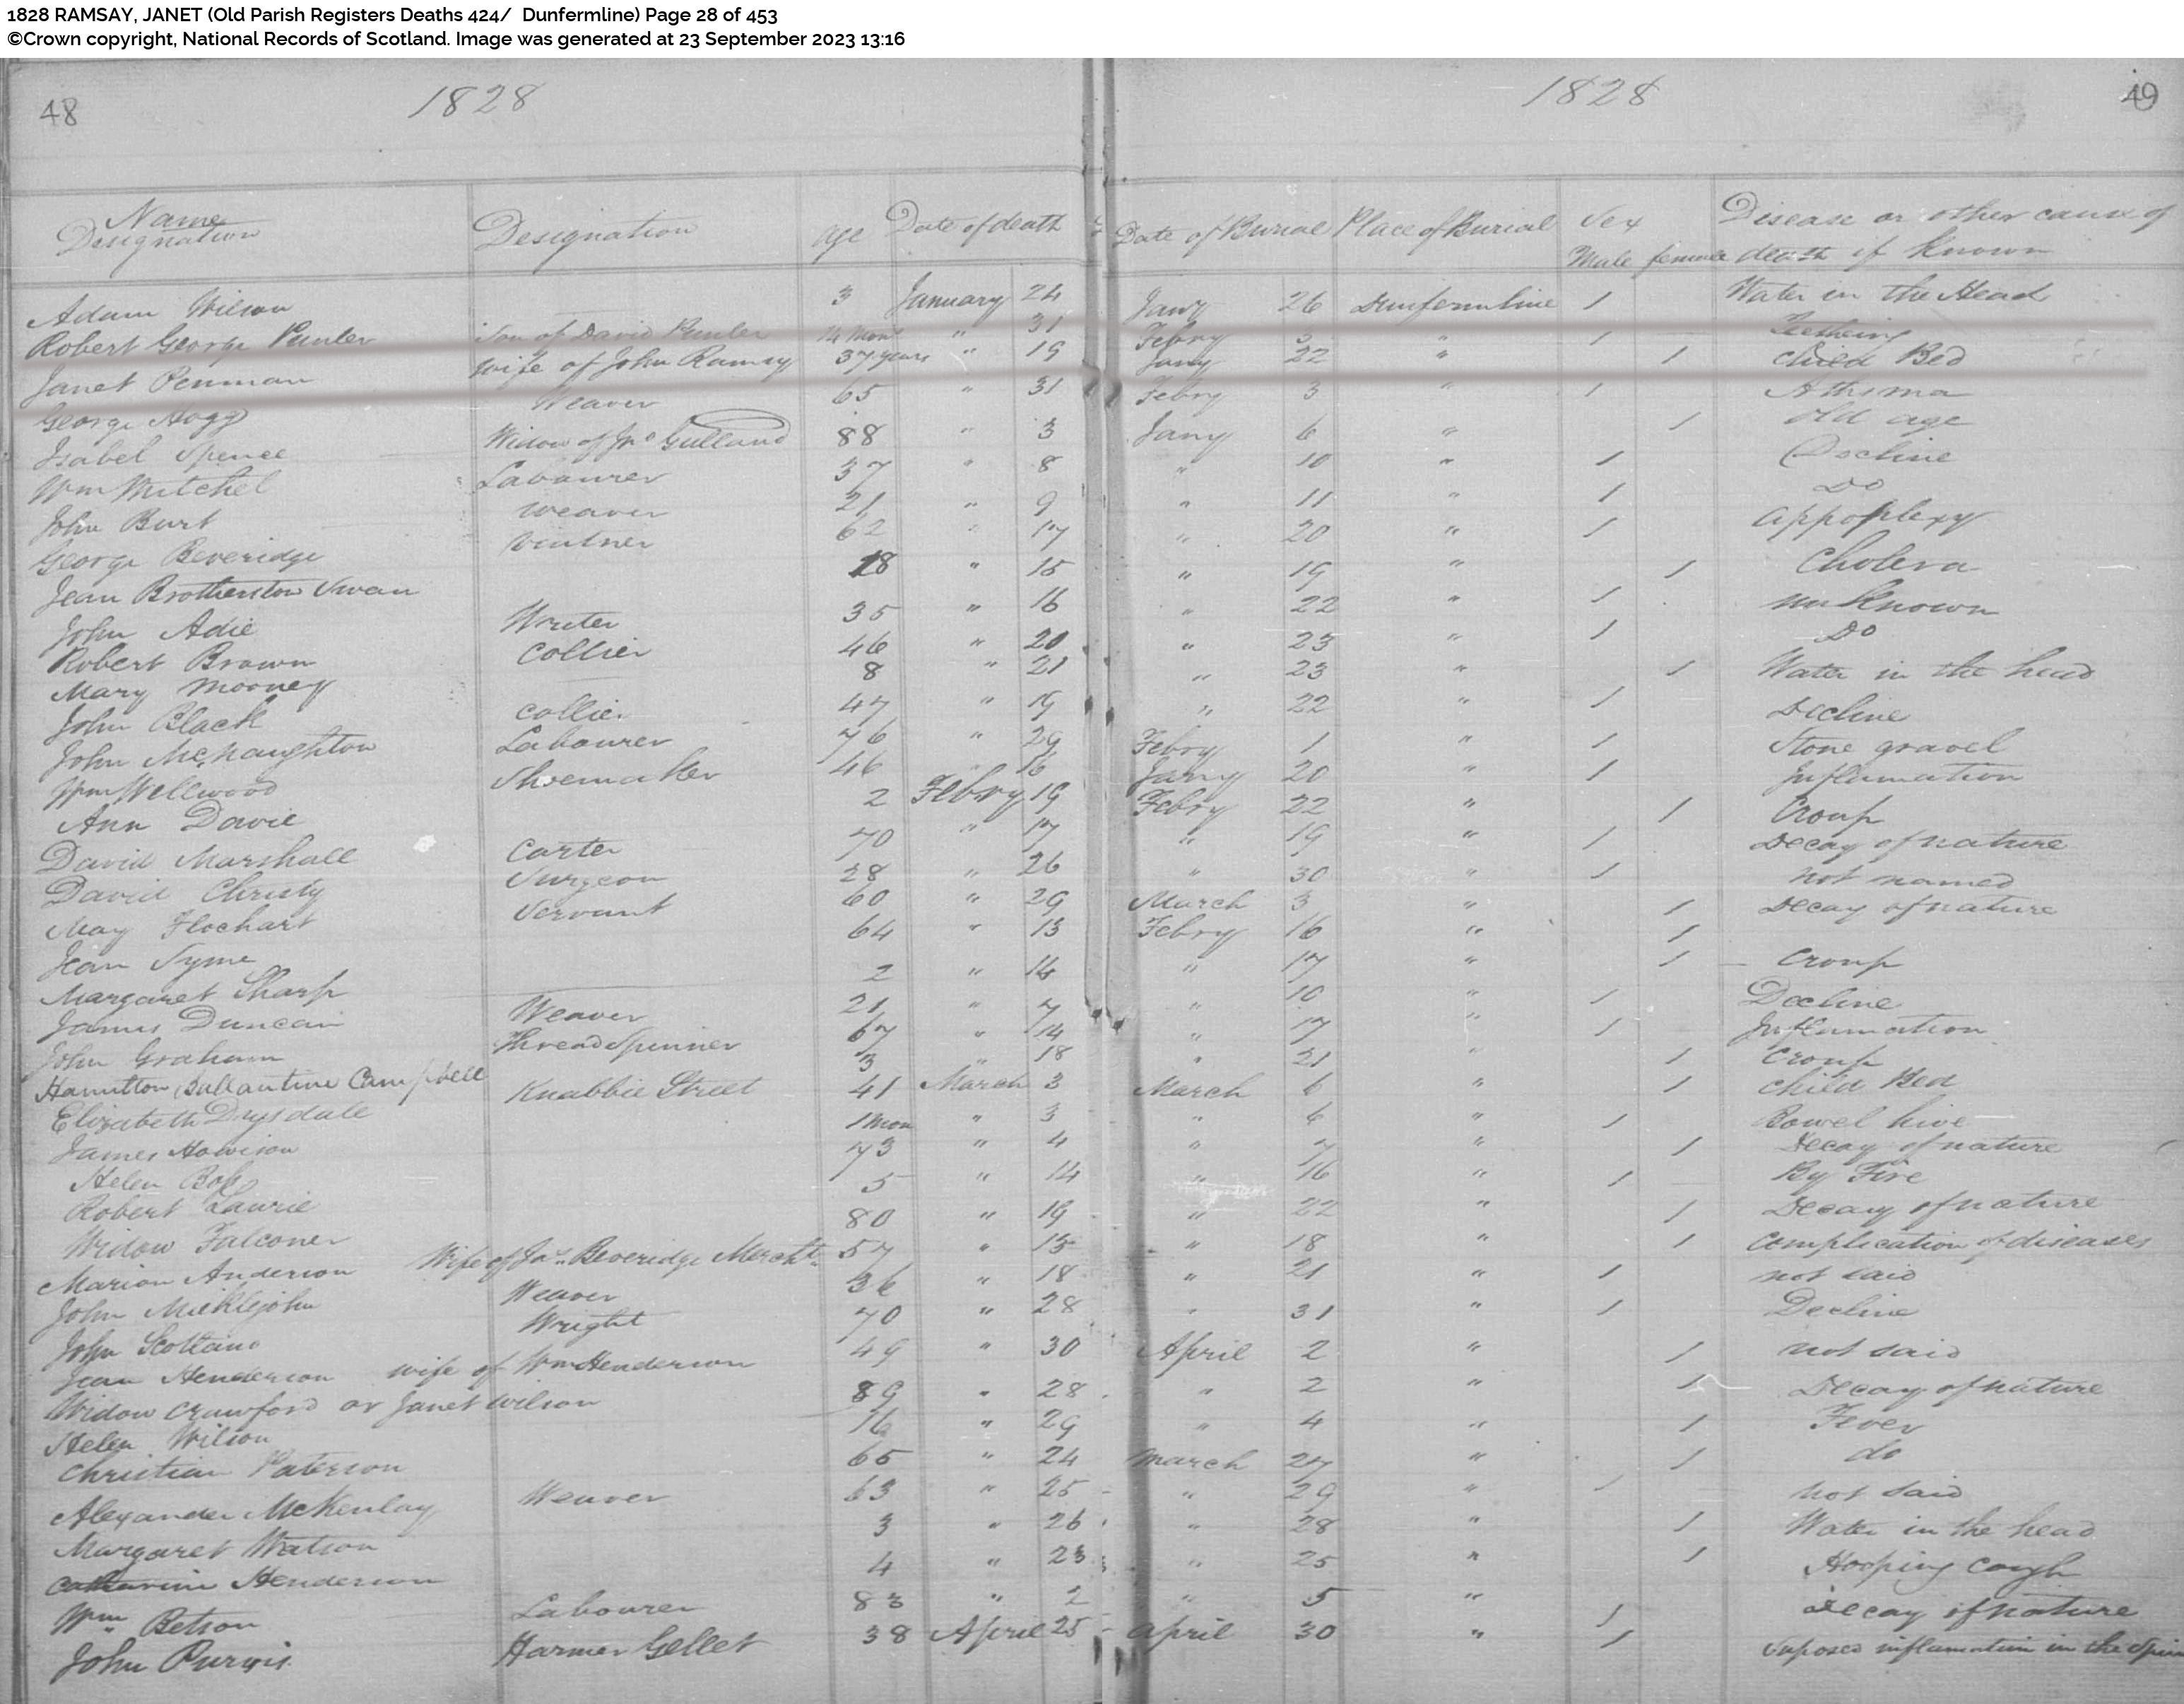 1828 RAMSAY, JANET (Old Parish Registers Deaths 424/ Dunfermline) Page 28 of 453
©Crown copyright, National Records of Scotland. Image was generated at 23 September 2023 13:16
48 1828 1828 49
Name Designation Designation age Date of death Date of Burial Place of Burial Sex Male female Disease or other cause of death if known
Adam Wilson 3 January 24 Jany 26 Dunfermline 1 Water in the Head
Robert George Punler Son of David Punler 14 Mon " 31 Febry 3 " 1 Teetheing
Janet Penman wife of John Ramsy 37 years " 19 Jany 22 " 1 Child Bed
George Hogg Weaver 65 " 31 Febry 3 " 1 Athsma
Isabel Spence Widow of Jno Gulland 88 " 3 Jany 6 " 1 old age
Wm Mitchel Labourer 37 " 8 " 10 " 1 Decline
John Burt weaver 21 " 9 " 11 " 1 Do
George Beveridge vintner 62 " 17 " 20 " 1 Appoplexy
Jean Brotherston Swan 18 " 15 " 19 " 1 Cholera
John Adie Writer 35 " 16 " 22 " 1 unknown
Robert Brown Collier 46 " 20 " 23 " 1 Do
Mary Mooney 8 " 21 " 23 " 1 Water in the head
John Black collier 47 " 19 " 22 " 1 Decline
John McNaughton Labourer 76 " 29 Febry 1 " 1 Stone gravel
Wm Wellwood Shoemaker 46 " 16 Jany 20 " 1 Inflamation
Ann Davie 2 Febry 19 Febry 22 " 1 Croup
David Marshall Carter 70 " 17 " 19 " 1 Decay of nature
David Christy Surgeon 28 " 26 " 30 " 1 not named
May Flockart Servant 60 " 29 March 3 " 1 Decay of nature
Jean Syme 64 " 13 Febry 16 " 1
Margaret Sharp 2 " 14 " 17 " 1 Croup
James Duncan Weaver 21 " 7 " 10 " 1 Decline
John Graham Thread Spinner 67 " 14 " 17 " 1 Inflamation
Hamilton Ballantine Campbell 3 " 18 " 21 " 1 Croup
Elizabeth Drysdale Knabbie Street 41 March 3 March 6 " 1 Child Bed
James Howison 1 Mon " 3 " 6 " 1 Bowel hive
Helen 73 " 4 " 7 " 1 Decay of nature
Robert Laurie 5 " 14 " 16 " 1 By Fire
Widow Falconer 80 " 19 " 22 " 1 Decay of nature
Marion Anderson Wife of Jas Beveridge Mercht 57 " 15 " 18 " 1 Complication of diseases
John Micklejohn Weaver 36 " 18 " 21 " 1 not said
John Scotland Wright 70 " 28 " 31 " 1 Decline
Jean Henderson wife of Wm Henderson 49 " 30 April 2 " 1 not said
Widow Crawford or Janet Wilson 89 " 28 " 2 " 1 Decay of nature
Helen Wilson 16 " 29 " 4 " 1 Fever
Christian Paterson 65 " 24 March 27 " 1 do
Alexander McKenlay Weaver 63 " 25 " 29 " 1 not said
Margaret Watson 3 " 26 " 28 " 1 Water in the head
Catharine Henderson 4 " 23 " 25 " 1 Hooping cough
Wm Betson Labourer 83 " 2 " 5 " 1 Decay of nature
John Purvis Harmer Gellet 38 April 25 April 30 " 1 Suposed inflamation in the